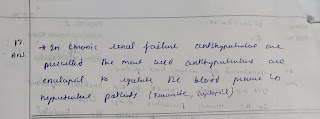 17. → In chronic renal failure antihypertensive are
Ans. prescribed the most used antihypertensive are
enalapril to regulate the blood pressure in
hypertensive patients (Furosemide, captopril)